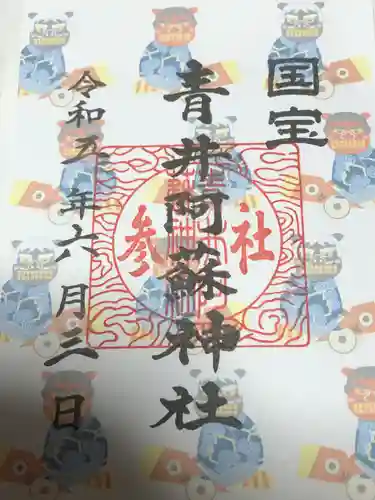 国宝
青井阿蘇神社
参社
令和五年六月三日